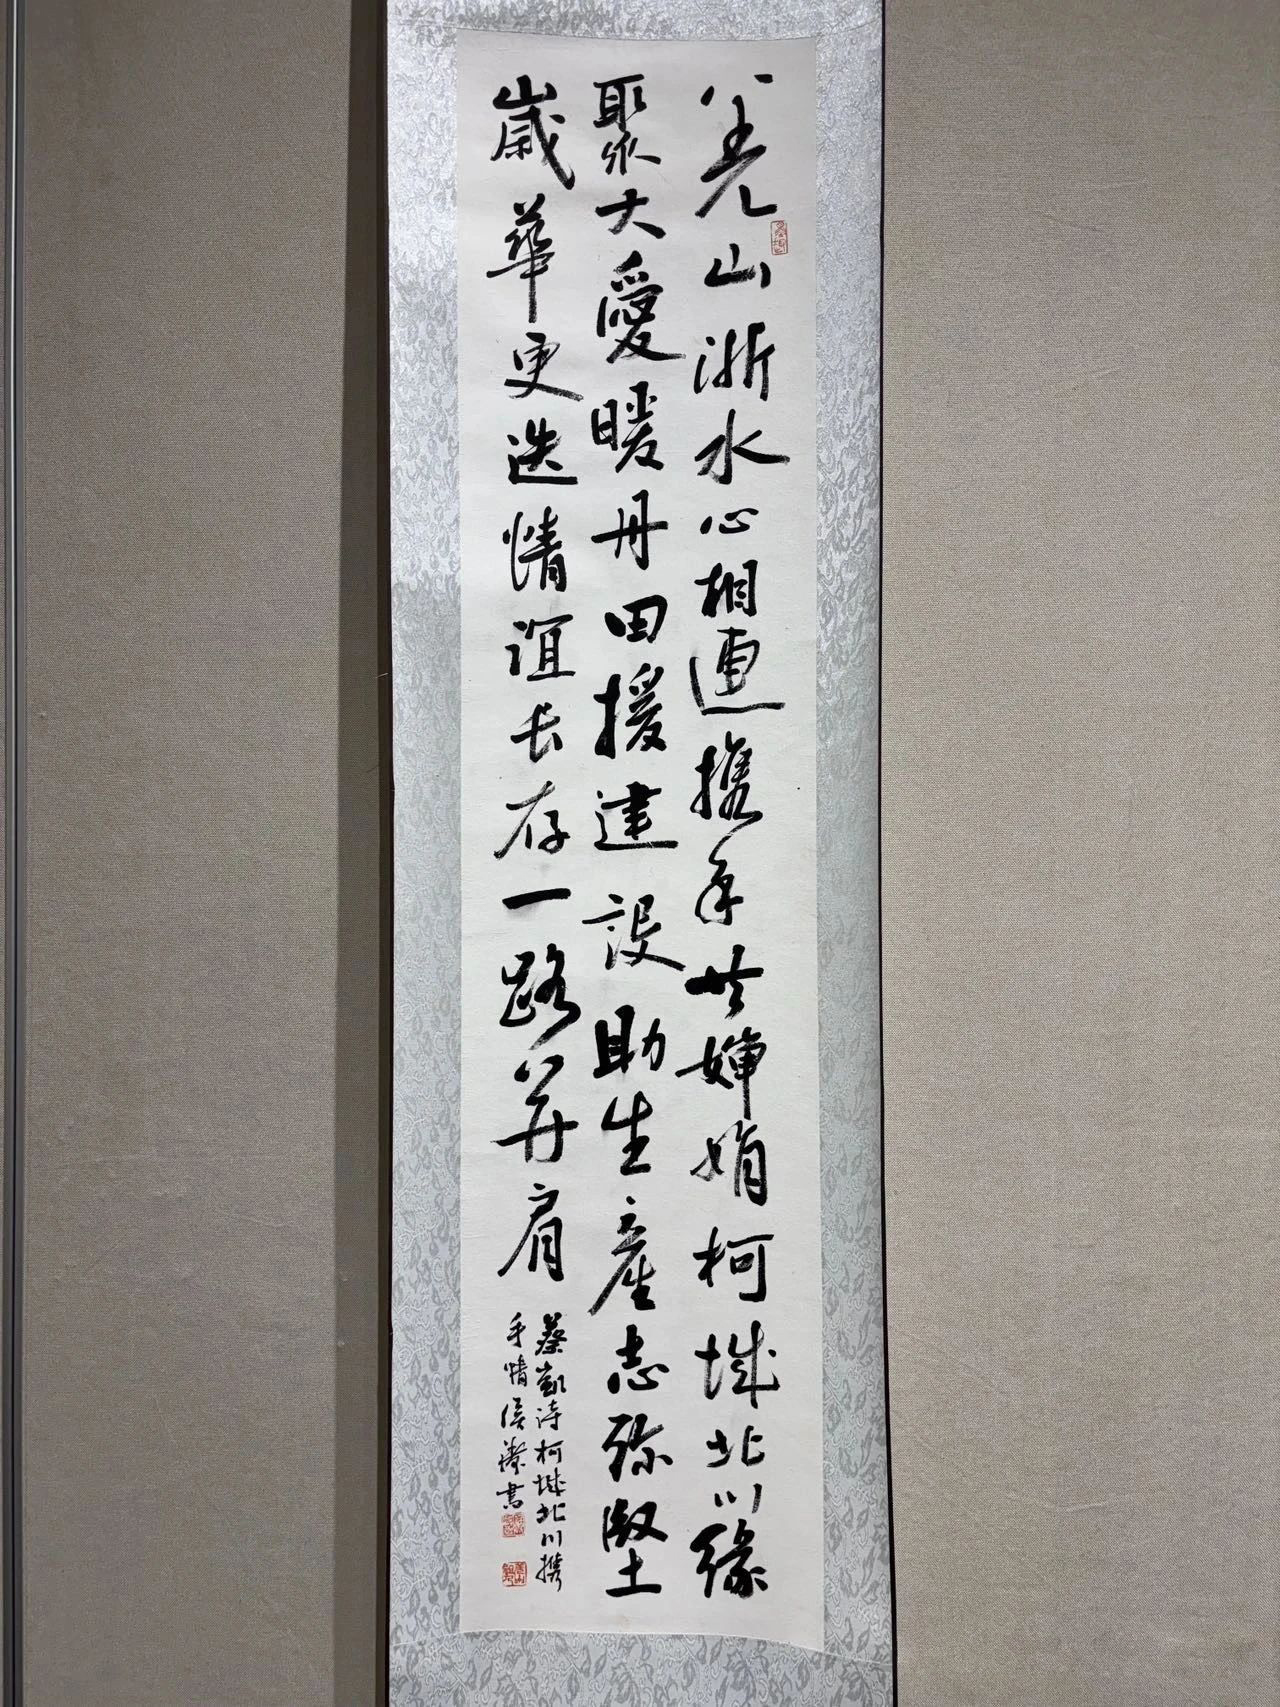 羌山浙水心相連攜手共嬋娟柯城北川緣
聚大愛暖丹田援建設助生産志弥堅
歲華更迭情誼长存一路并肩
蔡凱诗柯城北川攜
手情書